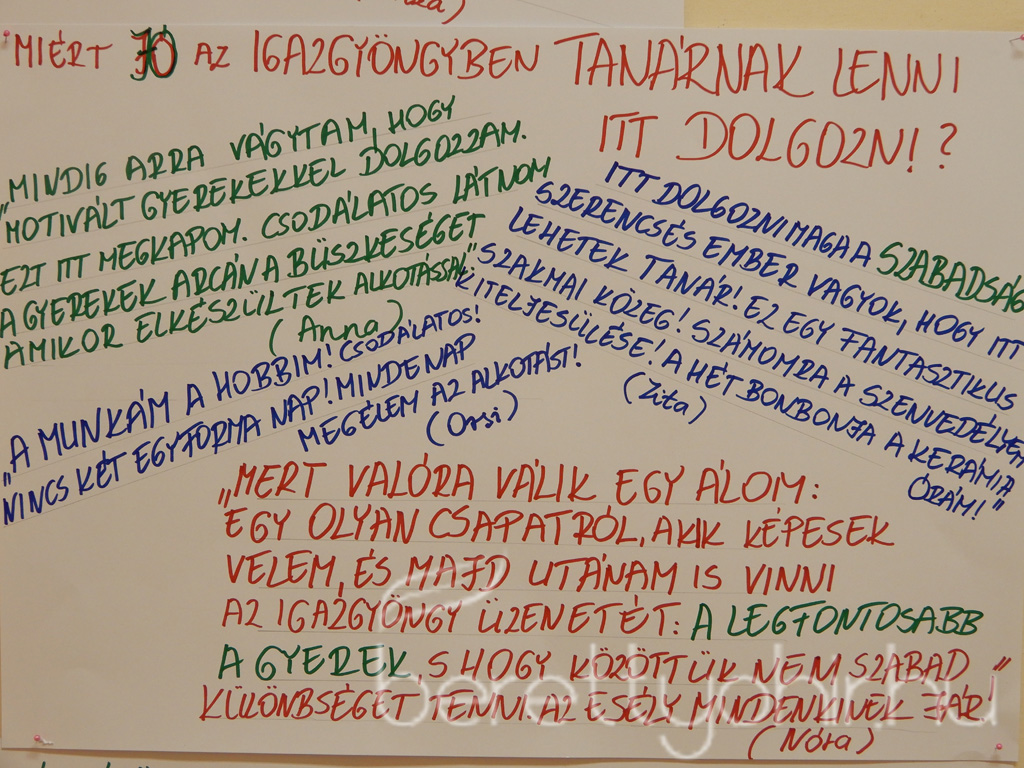 MIÉRT JÓ AZ IGAZGYÖNGYBEN TANÁRNAK LENNI
ITT DOLGOZNI?
"MINDIG ARRA VÁGYTAM, HOGY
MOTIVÁLT GYEREKEKKEL DOLGOZZAM.
EZT ITT MEGKAPOM. CSODÁLATOS LÁTNOM
A GYEREKEK ARCÁN A BÜSZKESÉGET
AMIKOR ELKÉSZÜLTEK ALKOTÁSSAL"
(Anna)
ITT DOLGOZNI MAGA A SZABADSÁG
SZERENCSÉS EMBER VAGYOK, HOGY ITT
LEHETEK TANÁR! EZ EGY FANTASZTIKUS
SZAKMAI KÖZEG! SZÁMOMRA A SZENVEDÉLYEM
KITELJESÜLÉSE! A HÉT BONBONJA A KERÁMIA
ÓRÁM!"
(Zita)
"A MUNKÁM A HOBBIM! CSODÁLATOS!
NINCS KÉT EGYFORMA NAP! MINDENAP
MEGÉLEM AZ ALKOTÁST!
(Orsi)
"MERT VALÓRA VÁLIK EGY ÁLOM:
EGY OLYAN CSAPATRÓL, AKIK KÉPESEK
VELEM, ÉS MAJD UTÁNAM IS VINNI
AZ IGAZGYÖNGY ÜZENETÉT: A LEGFONTOSABB
A GYEREK, S HOGY KÖZÖTTÜK NEM SZABAD
KÜLÖNBSÉGET TENNI. AZ ESÉLY MINDENKINEK JÁR!"
(Nóra)
berettyohir.hu